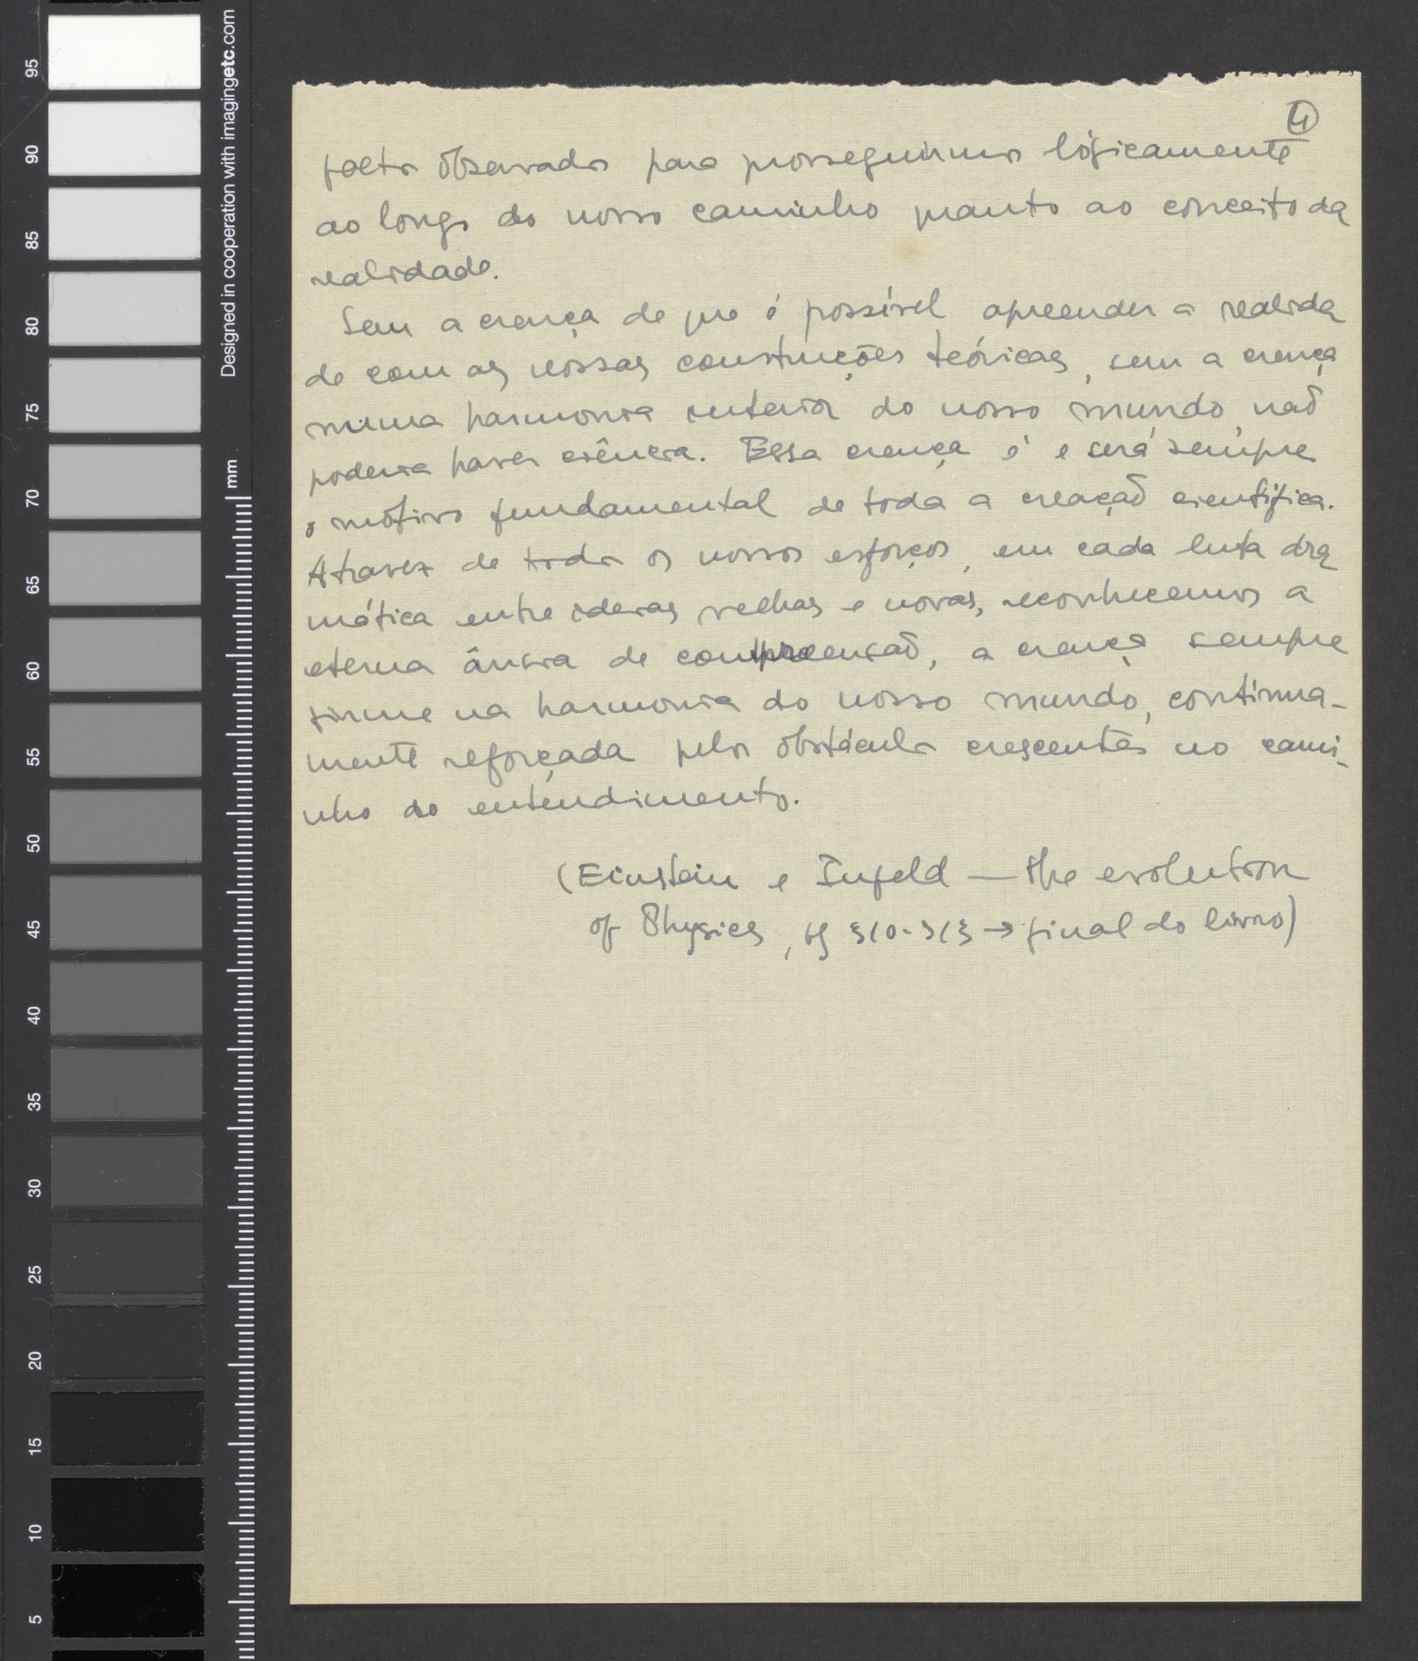 4
factos observados para prosseguirmos lógicamente
ao longo do nosso caminho quanto ao conceito da
realidade.
Sem a crença de que é possível apreender a realida
de com as nossas construções teóricas, sem a crença
numa harmonia interior do nosso mundo, não
poderia haver ciência. Essa crença é e será sempre
o motivo fundamental de toda a creação cientifica.
Atravez de todos os nossos esforços, em cada luta dra
mática entre ideias velhas e novas, reconhecemos a
eterna ânsia de compreensão, a crença sempre
firme na harmonia do nosso mundo, continua-
mente reforçada pelos obstáculos crescentes no cami-
nho do entendimento.
(Einstein e Infeld — the evolution
of Physics, 310-313 → final do livro)
Designed in cooperation with imagingetc.com
mm
95
90
85
80
75
70
65
60
55
50
45
40
35
30
25
20
15
10
5